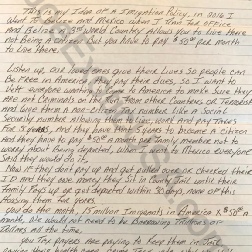 This is my Idea of A Imigration Policy. in 2016 I
Went to Belize and Mexico when I took the office
And Belize a 3rd World Country Allows you to live there
not being A Citizen But you have to pay $50.00 per month
to live there.
Listen up, our loved ones give there lives so people can
Be Free in America they pay there dues, so I want to
let everyone waiting to come to America to make sure they
are not Criminals or from other Countries, or Terrorist
and Give them A non-Citizen number Like a Social
Security number allowing them to live, work and pay taxes
For 5 years, and they have 5 years to become a citizen
and they have to pay $50.00 a month per family member not to
worry about being deported, when I went to Mexico everyone
Said they would do it.
Now if they don't pay up and get pulled over or checked there
I.D. and they owe money they Sit in Jail until their
Family Pays up or get deported within 30 days, none of this
Housing them for years.
You do the math, 15 million Imigrants in America x $50.00 a
month, We would not need to be Borrowing Trillions of
Dollars all the time.
You Tax payers are paying to keep them in